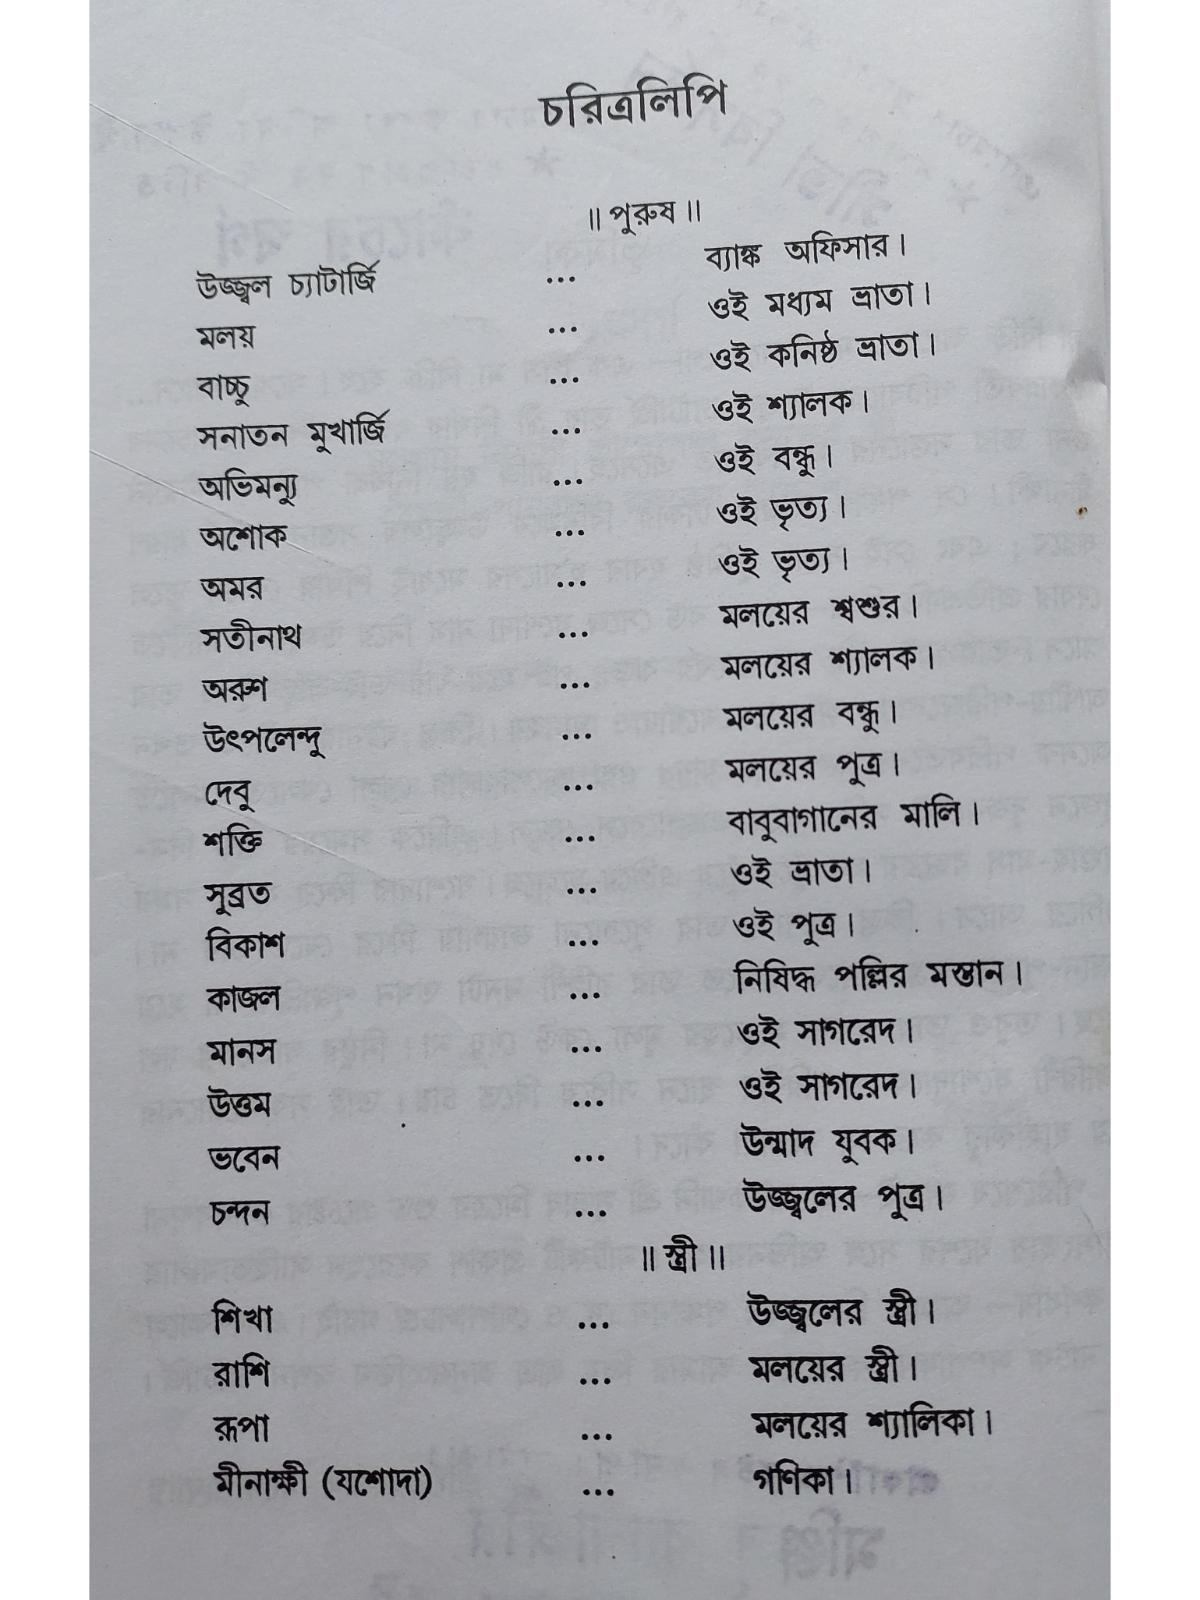 চরিত্রলিপি
॥ পুরুষ ॥
উজ্জ্বল চ্যাটার্জি ... ব্যাঙ্ক অফিসার।
মলয় ... ওই মধ্যম ভ্রাতা।
বাচ্চু ... ওই কনিষ্ঠ ভ্রাতা।
সনাতন মুখার্জি ... ওই শ্যালক।
অভিমন্যু ... ওই বন্ধু।
অশোক ... ওই ভৃত্য।
অমর ... ওই ভৃত্য।
সতীনাথ ... মলয়ের শ্বশুর।
অরুশ ... মলয়ের শ্যালক।
উৎপলেন্দু ... মলয়ের বন্ধু।
দেবু ... মলয়ের পুত্র।
শক্তি ... বাবুবাগানের মালি।
সুব্রত ... ওই ভ্রাতা।
বিকাশ ... ওই পুত্র।
কাজল ... নিষিদ্ধ পল্লির মস্তান।
মানস ... ওই সাগরেদ।
উত্তম ... ওই সাগরেদ।
ভবেন ... উন্মাদ যুবক।
চন্দন ... উজ্জ্বলের পুত্র।
॥ স্ত্রী ॥
শিখা ... উজ্জ্বলের স্ত্রী।
রাশি ... মলয়ের স্ত্রী।
রূপা ... মলয়ের শ্যালিকা।
মীনাক্ষী (যশোদা) ... গণিকা।